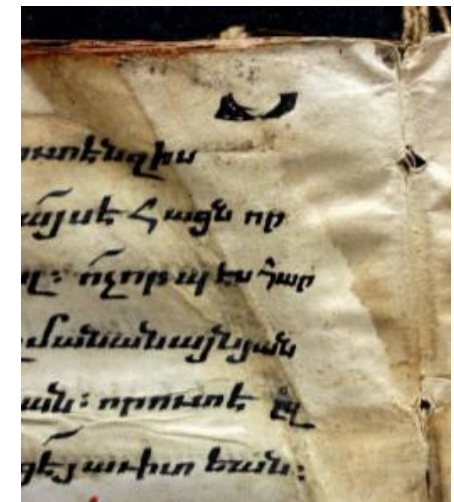 ուտէ զիս
այս է Հացն որ
լ։ ոչ որպէս հար
մանանայն յան
ան։ որ ուտէ
ցէ յաւիտեան։